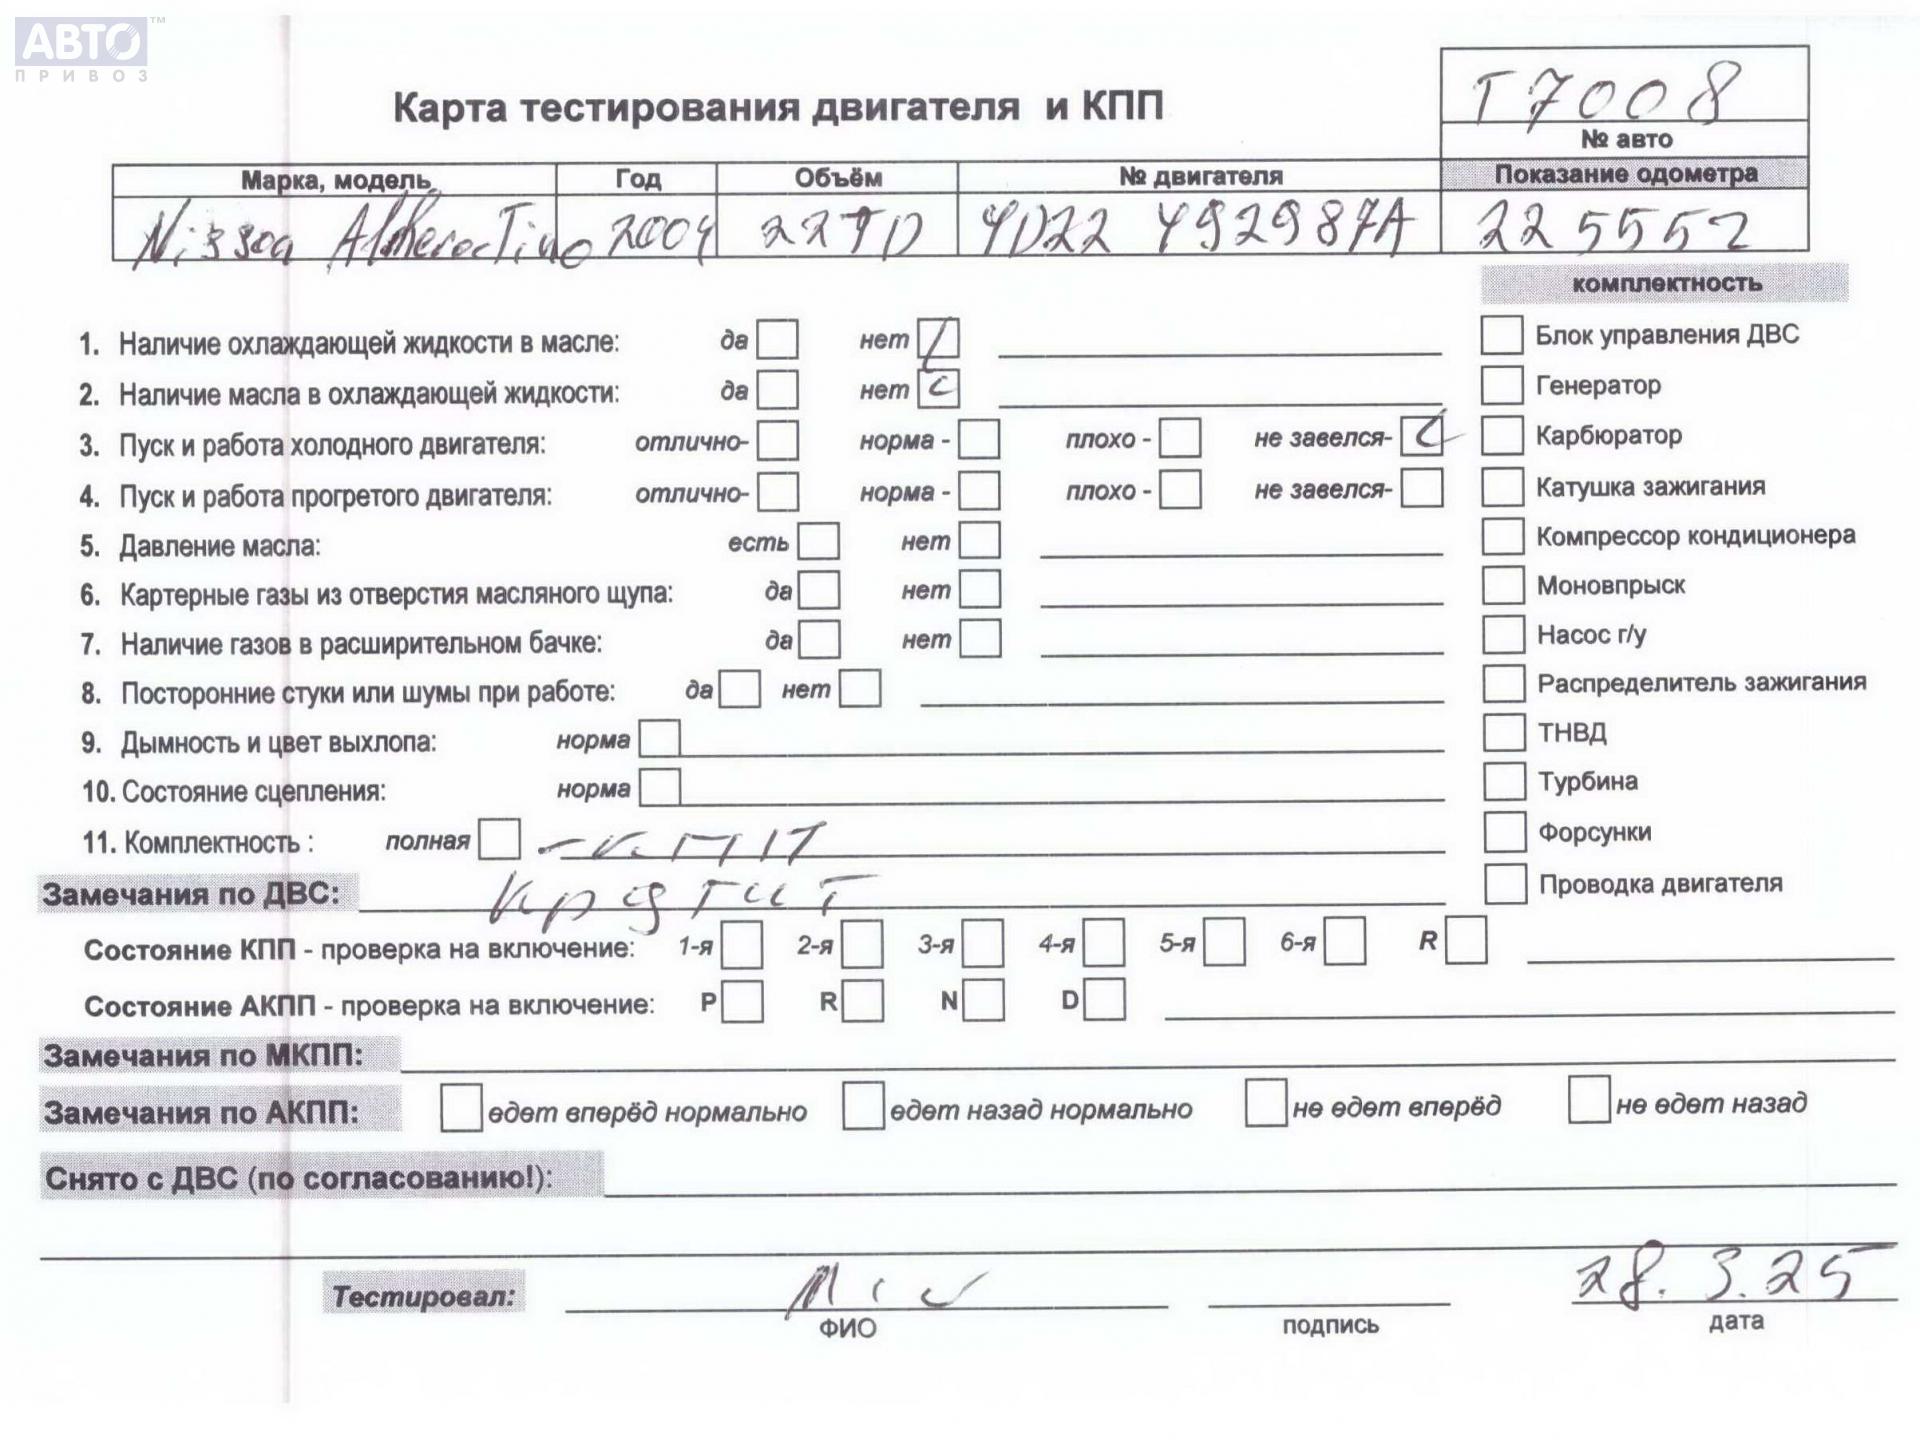 АВТО™
ПРИВОЗ
Т7008
№ авто
Карта тестирования двигателя и КПП
Марка, модель Год Объём № двигателя Показание одометра
Nissan Almera Tino 2004 22TD YD22 492987A 225552
комплектность
1. Наличие охлаждающей жидкости в масле: да нет
2. Наличие масла в охлаждающей жидкости: да нет
3. Пуск и работа холодного двигателя: отлично- норма - плохо - не завелся-
4. Пуск и работа прогретого двигателя: отлично- норма - плохо - не завелся-
5. Давление масла: есть нет
6. Картерные газы из отверстия масляного щупа: да нет
7. Наличие газов в расширительном бачке: да нет
8. Посторонние стуки или шумы при работе: да нет
9. Дымность и цвет выхлопа: норма
10. Состояние сцепления: норма
11. Комплектность : полная
Блок управления ДВС
Генератор
Карбюратор
Катушка зажигания
Компрессор кондиционера
Моновпрыск
Насос г/у
Распределитель зажигания
ТНВД
Турбина
Форсунки
Проводка двигателя
Замечания по ДВС: крутит
Состояние КПП - проверка на включение: 1-я 2-я 3-я 4-я 5-я 6-я R
Состояние АКПП - проверка на включение: P R N D
Замечания по МКПП:
Замечания по АКПП: едет вперёд нормально едет назад нормально не едет вперёд не едет назад
Снято с ДВС (по согласованию!):
Тестировал: 28.3.25
ФИО подпись дата